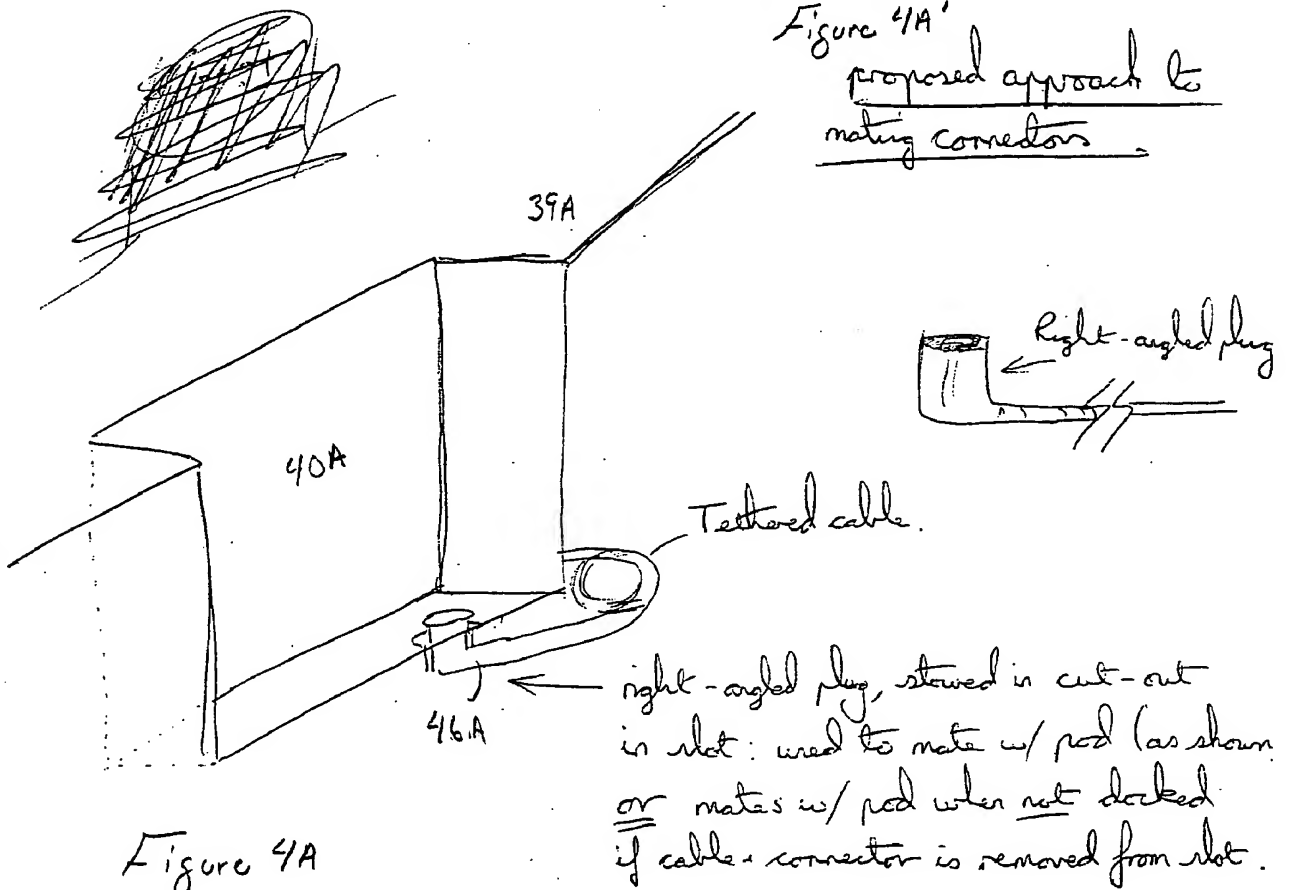 Figure 4A'
proposed approach to
mating connectors.
39A
Right-angled plug
40A
Tethered cable.
right-angled plug, stowed in cut-out
in slot: used to mate w/ pod (as shown
46A
or mates w/ pod when not docked
if cable + connector is removed from slot.
Figure 4A